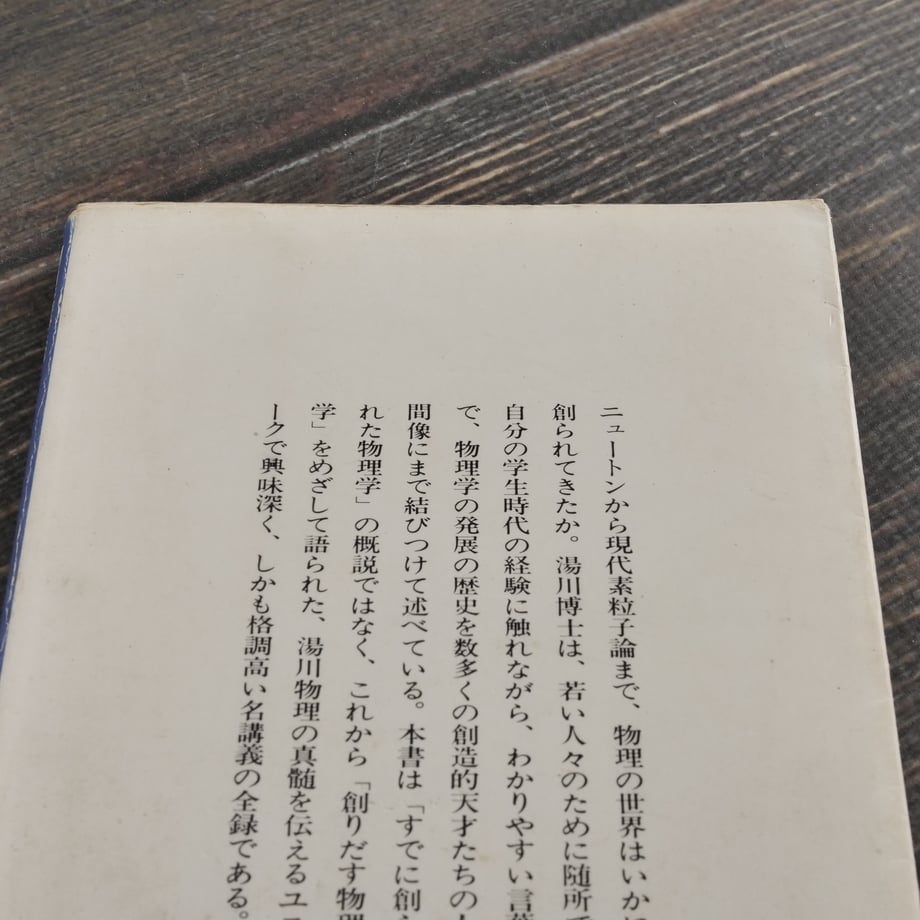 ニュートンから現代素粒子論まで、物理の世界はいかに
創られてきたか。湯川博士は、若い人々のために随所で
自分の学生時代の経験に触れながら、わかりやすい言葉
で、物理学の発展の歴史を数多くの創造的天才たちの人
間像にまで結びつけて述べている。本書は「すでに創ら
れた物理学」の概説ではなく、これから「創りだす物理
学」をめざして語られた、湯川物理の真髄を伝えるユニ
ークで興味深く、しかも格調高い名講義の全録である。